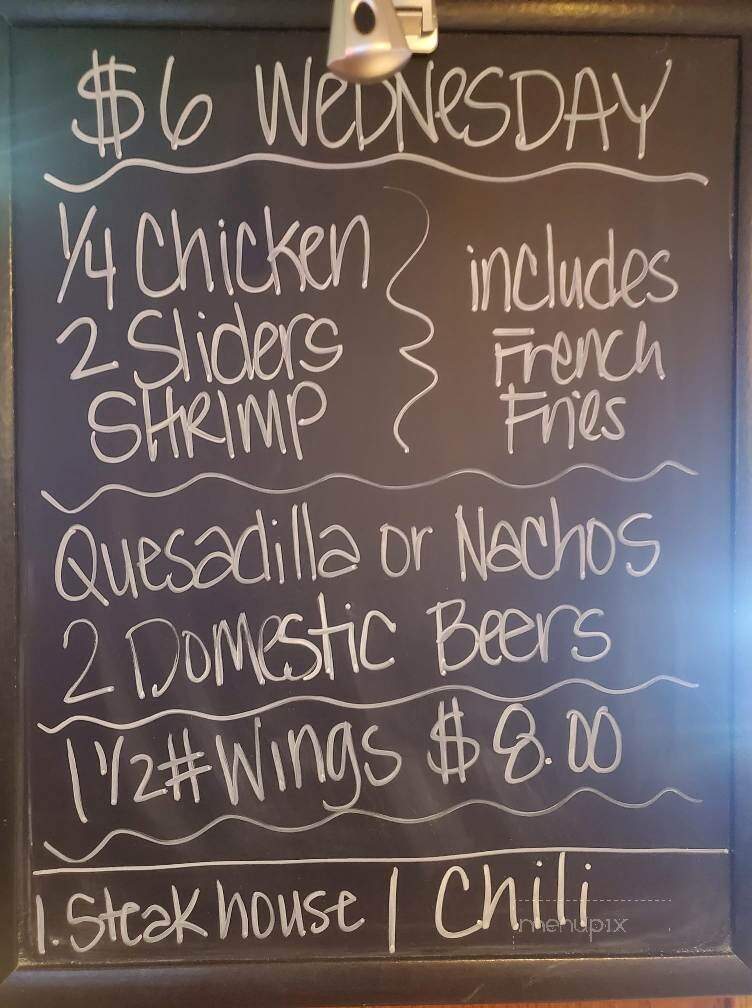 $6 WEDNESDAY
1/4 Chicken
2 Sliders
SHRIMP
includes
French
Fries
Quesadilla or Nachos
2 Domestic Beers
1 1/2# Wings $8.00
1. Steak house | Chili
menupix